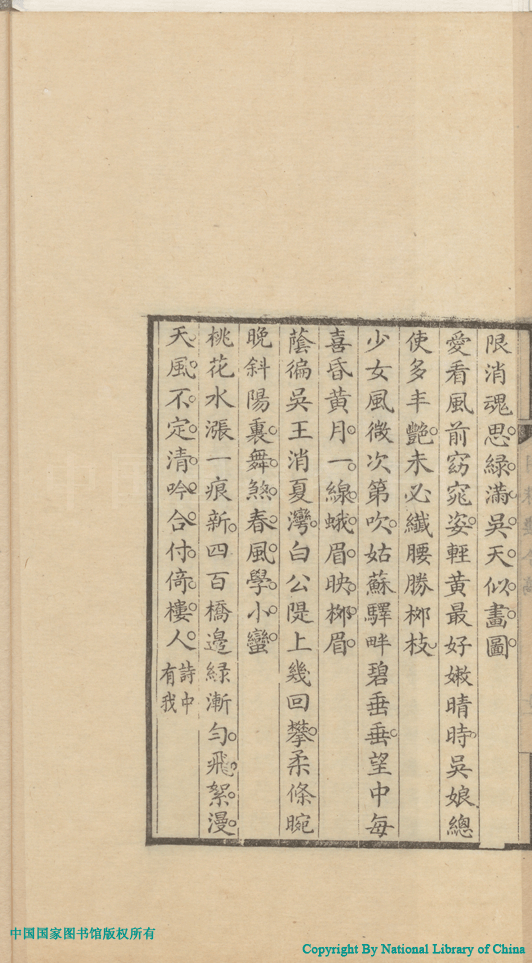 限消魂思綠滿吳天似畫圖
愛看風前窈窕姿輕黃最好嫩晴時吳娘總
使多丰艷未必纖腰勝桺枝
少女風微次第吹姑蘇驛畔碧垂垂望中每
喜昏黃月一線蛾眉映桺眉
蔭徧吳王消夏灣白公隄上幾回攀柔條晼
晚斜陽裏舞煞春風學小蠻
桃花水漲一痕新四百橋邊綠漸勻飛絮漫
天風不定清吟合付倚樓人
詩中
有我
中国国家图书馆版权所有
Copyright By National Library of China